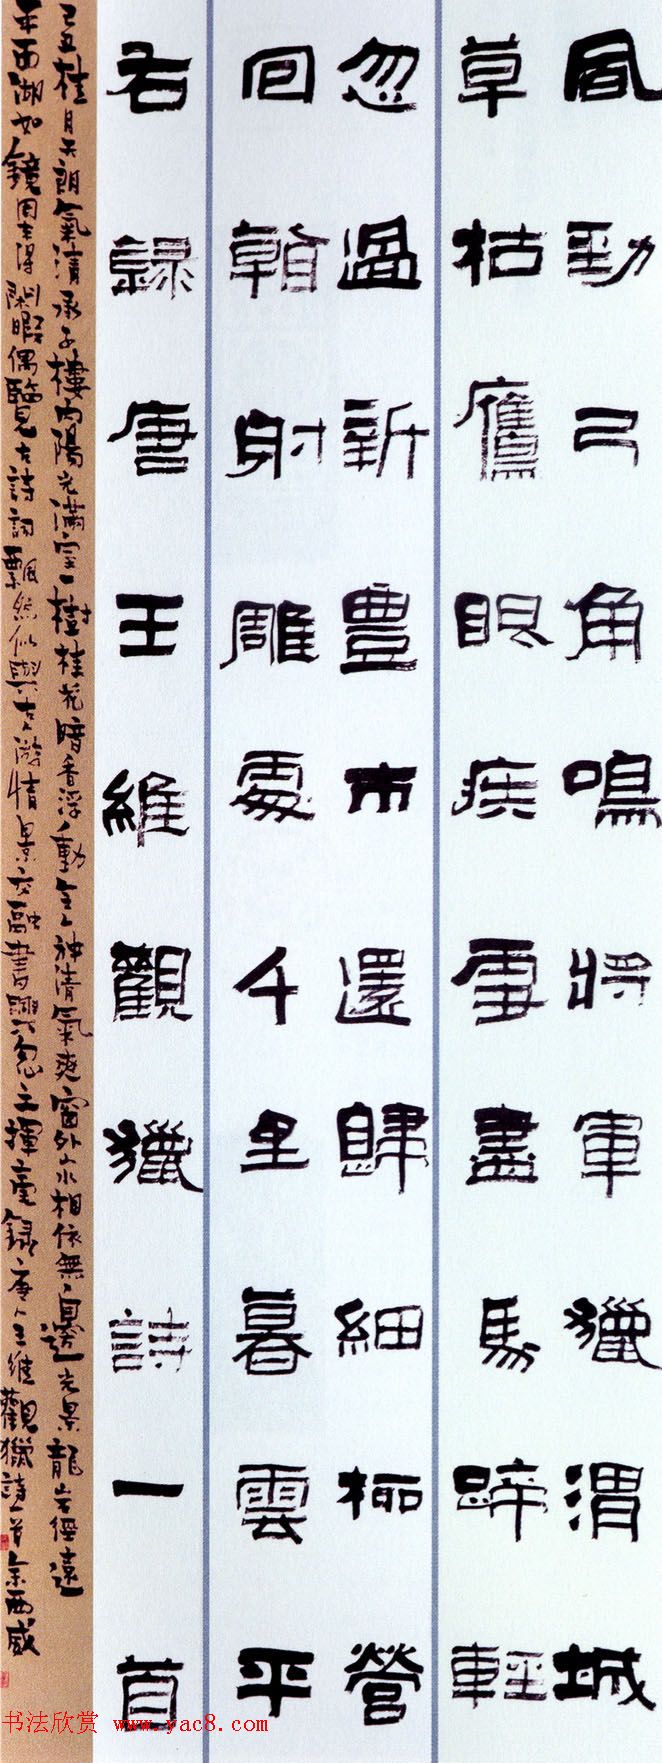 風勁弓角鳴將軍獵渭城
草枯鷹眼疾雪盡馬蹄輕
忽過新豐市還歸細柳營
回看射雕處千里暮雲平
右錄唐王維觀獵詩一首
己丑桂月天朗氣清承子樓內陽光滿室一樹桂花暗香浮動令人神清氣爽窗外山水相依無邊光景龍岩徑遠
平西湖如鏡得閑暇偶覽古詩詞飄然似與古人游情景交融書興忽至揮毫錄唐人王維觀獵詩一首余西威
书法欣赏 www.yac8.com